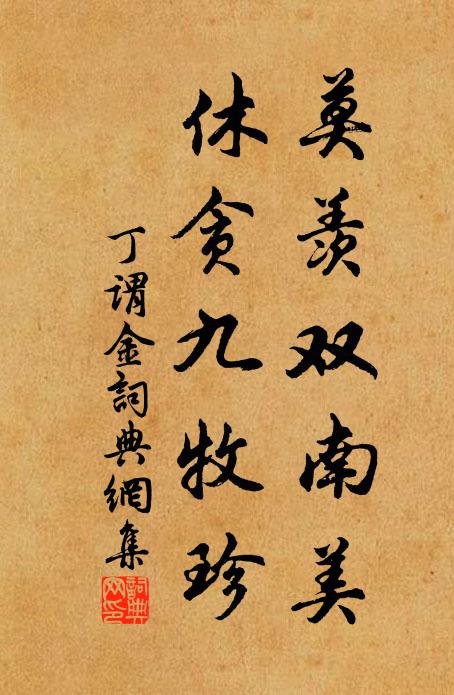 莫羡双南美
休贪九牧珍
丁谓金詞典網集
詞典网印